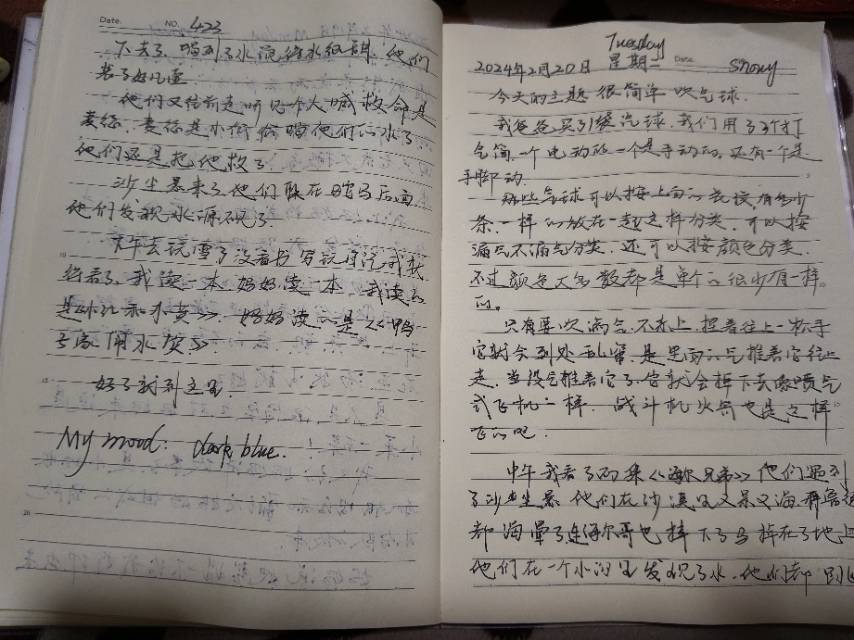 Date. NO. 423
下去了, 喝到了水
他们
他们又往前走听见个人喊救命是
他们还是把他救了
沙尘暴来了他们躲在骆马后面
他们发现水源不见了.
下午去玩雪了没看书
我读一本妈妈读一本, 我读的
是 妈妈读的是《
好了就到这里.
My mood: dark blue.
Tuesday
2024年2月20日 星期二 Date. snowy
今天的主题很简单吹气球.
我爸爸买引袋汽球, 我们用了3个打
气筒, 一个电动的一个是手动的, 还有一个是
手脚动.
那些气球可以按上面的花纹, 有多少
条, 一样的放在一起这样分类, 可以按
漏气不漏气分类, 还可以按颜色分类,
不过颜色大多数都是单个的很少有一样
的。
只有要吹满气, 不扎上, 捏着往上一松手
它就会到处乱窜, 是里面的气推着它往上
走, 当没气推着它了, 它就会掉下去像喷气
式飞机一样, 战斗机火箭也是这样
飞的吧.
中午我看了两集《海尔兄弟》他们遇到
了沙尘暴, 他们在沙漠里又累又渴
都渴晕了连海尔哥也掉下了马掉在了地上
他们在一个小沟里发现了水, 他们都